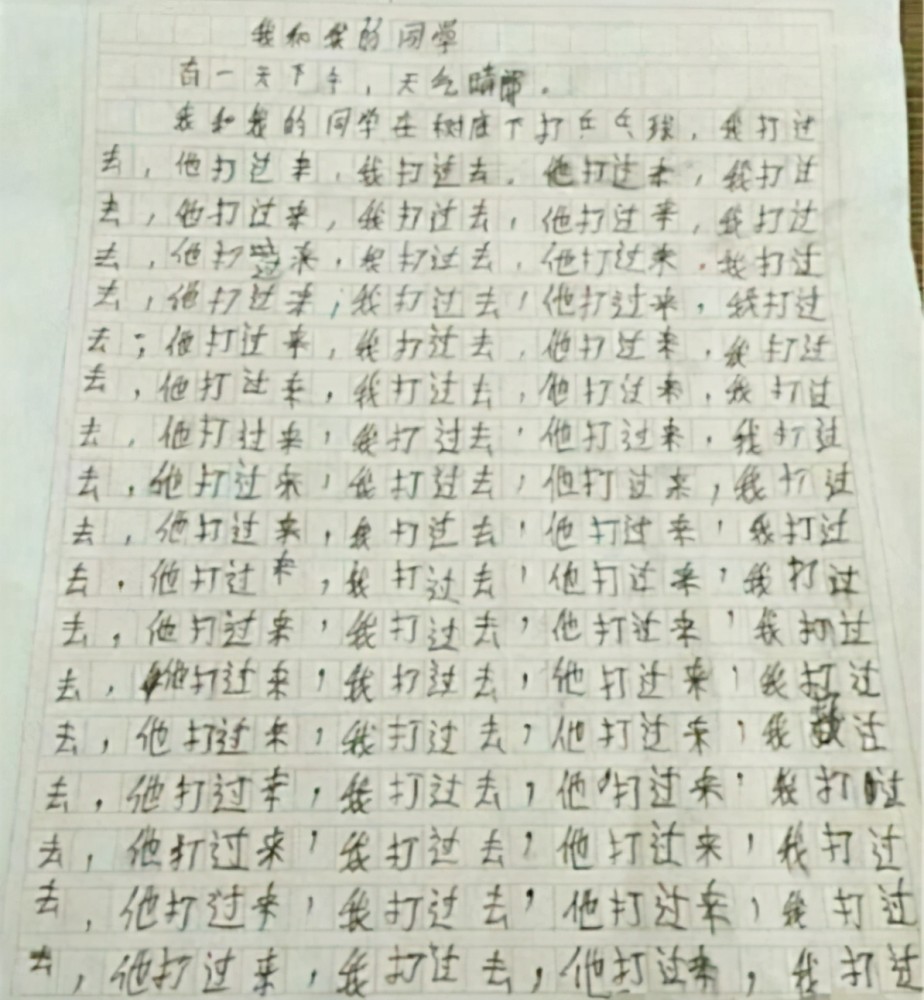 我和我的同学
有一天下午，天气晴朗。
我和我的同学在树底下打乒乓球，我打过
去，他打过来，我打过去，他打过来，我打过
去，他打过来，我打过去，他打过来，我打过
去，他打过来，我打过去，他打过来，我打过
去，他打过来，我打过去，他打过来，我打过
去，他打过来，我打过去，他打过来，我打过
去，他打过来，我打过去，他打过来，我打过
去，他打过来，我打过去，他打过来，我打过
去，他打过来，我打过去，他打过来，我打过
去，他打过来，我打过去，他打过来，我打过
去，他打过来，我打过去，他打过来，我打过
去，他打过来，我打过去，他打过来，我打过
去，他打过来，我打过去，他打过来，我打过
去，他打过来，我打过去，他打过来，我过
去，他打过来，我打过去，他打过来，我打过
去，他打过来，我打过去，他打过来，我打过
去，他打过来，我打过去，他打过来，我打过
去，他打过来，我打过去，他打过来，我打过